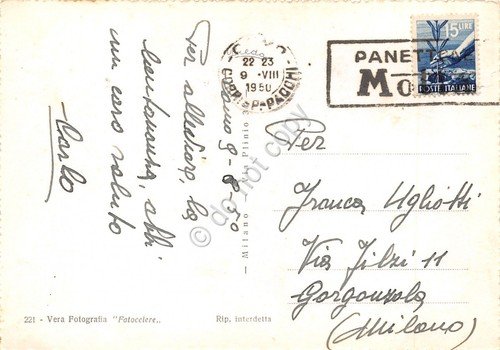 Milano 9-8-50
Per alleviare la
lontananza, abbi
un caro saluto
Carlo
22 23
9 - VIII
1950
CORR. P. PACCHI
15 LIRE
POSTE ITALIANE
PANETTO
Mo
Per
Franca Ugliotti
Via Filzi 11
Gorgonzola
(Milano)
Milano - Via Plinio 3
221 - Vera Fotografia "Fotocelere"
Rip. interdetta
do not copy